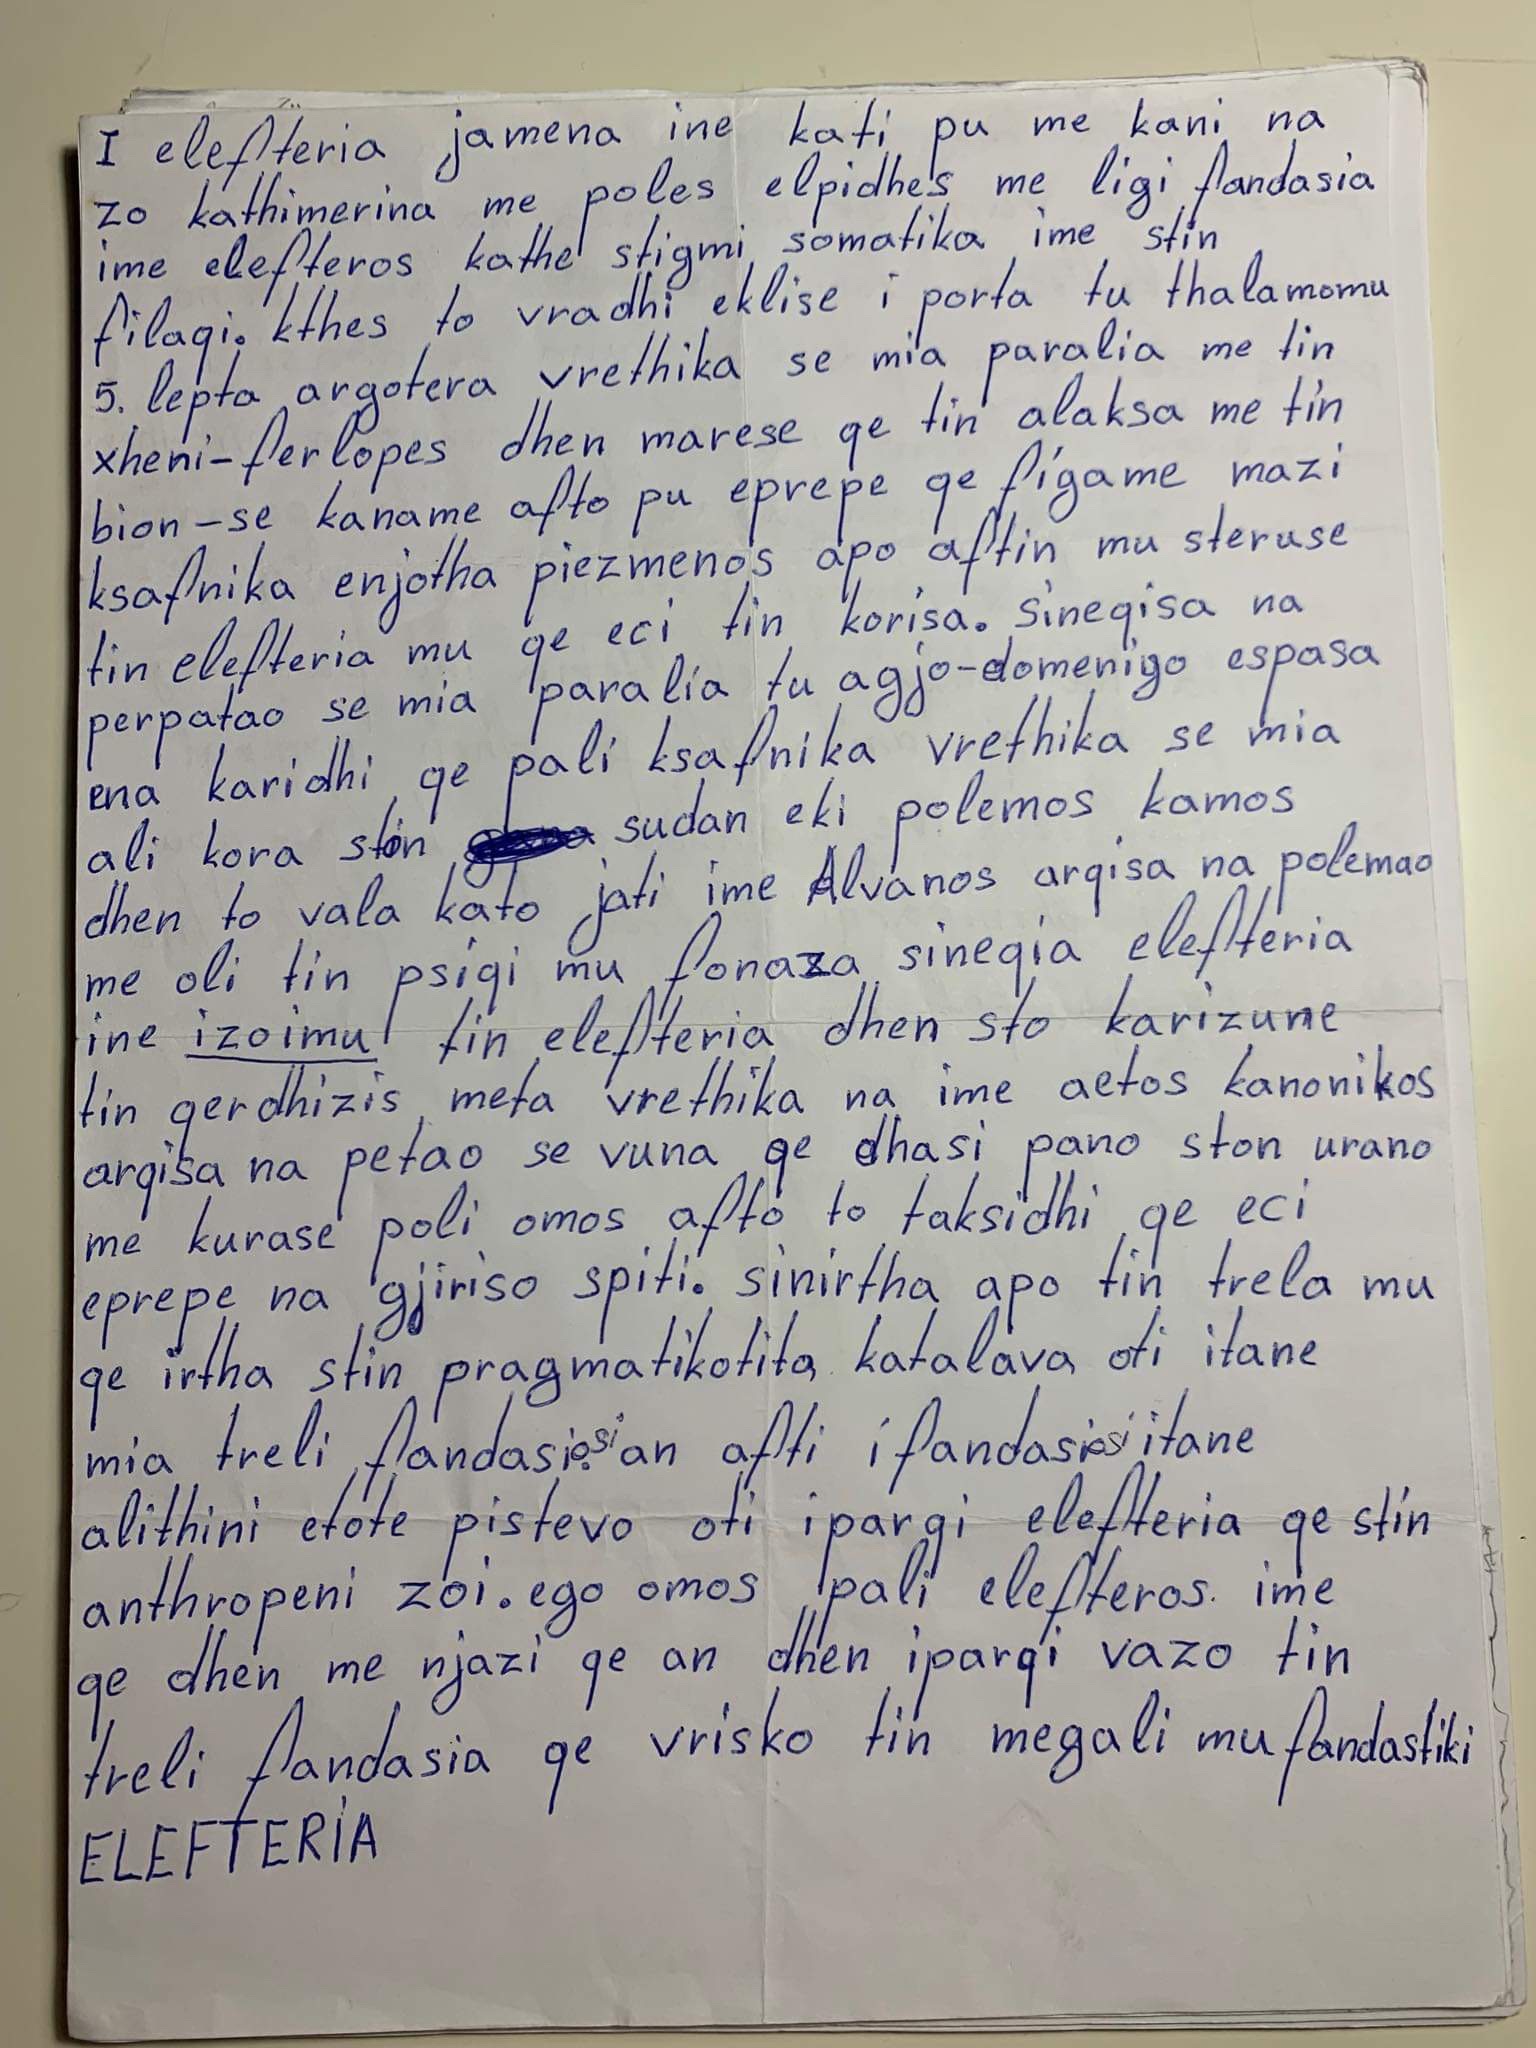 I elefteria jamena ine kati pu me kani na
zo kathimerina me poles elpidhes me ligi fandasia
ime elefteros kathe stigmi somatika ime stin
filaqi. kthes to vradhi eklise i porta tu thalamomu
5. lepta argotera vrethika se mia paralia me tin
xheni-ferlopes dhen marese qe tin alaksa me tin
bion-se kaname afto pu eprepe qe figame mazi
ksafnika enjotha piezmenos apo aftin mu steruse
tin elefteria mu qe eci tin korisa. sineqisa na
perpatao se mia paralia tu agjo-domenigo espasa
ena karidhi qe pali ksafnika vrethika se mia
ali kora stin sudan eki polemos kamos
dhen to vala kato jati ime Alvanos arqisa na polemao
me oli tin psiqi mu fonaza sineqia elefteria
ine izoimu tin elefteria dhen sto karizune
tin qerdhizis meta vrethika na ime aetos kanonikos
arqisa na petao se vuna qe dhasi pano ston urano
me kurase poli omos afto to taksidhi qe eci
eprepe na gjiriso spiti. sinirtha apo tin trela mu
qe irtha stin pragmatikotita katalava oti itane
mia treli fandasiosi an afti i fandasiosi itane
alithini etote pistevo oti ipargi elefteria qe stin
anthropeni zoi. ego omos pali elefteros ime
qe dhen me njazi qe an dhen iparqi vazo tin
treli fandasia qe vrisko tin megali mu fandastiki
ELEFTERIA